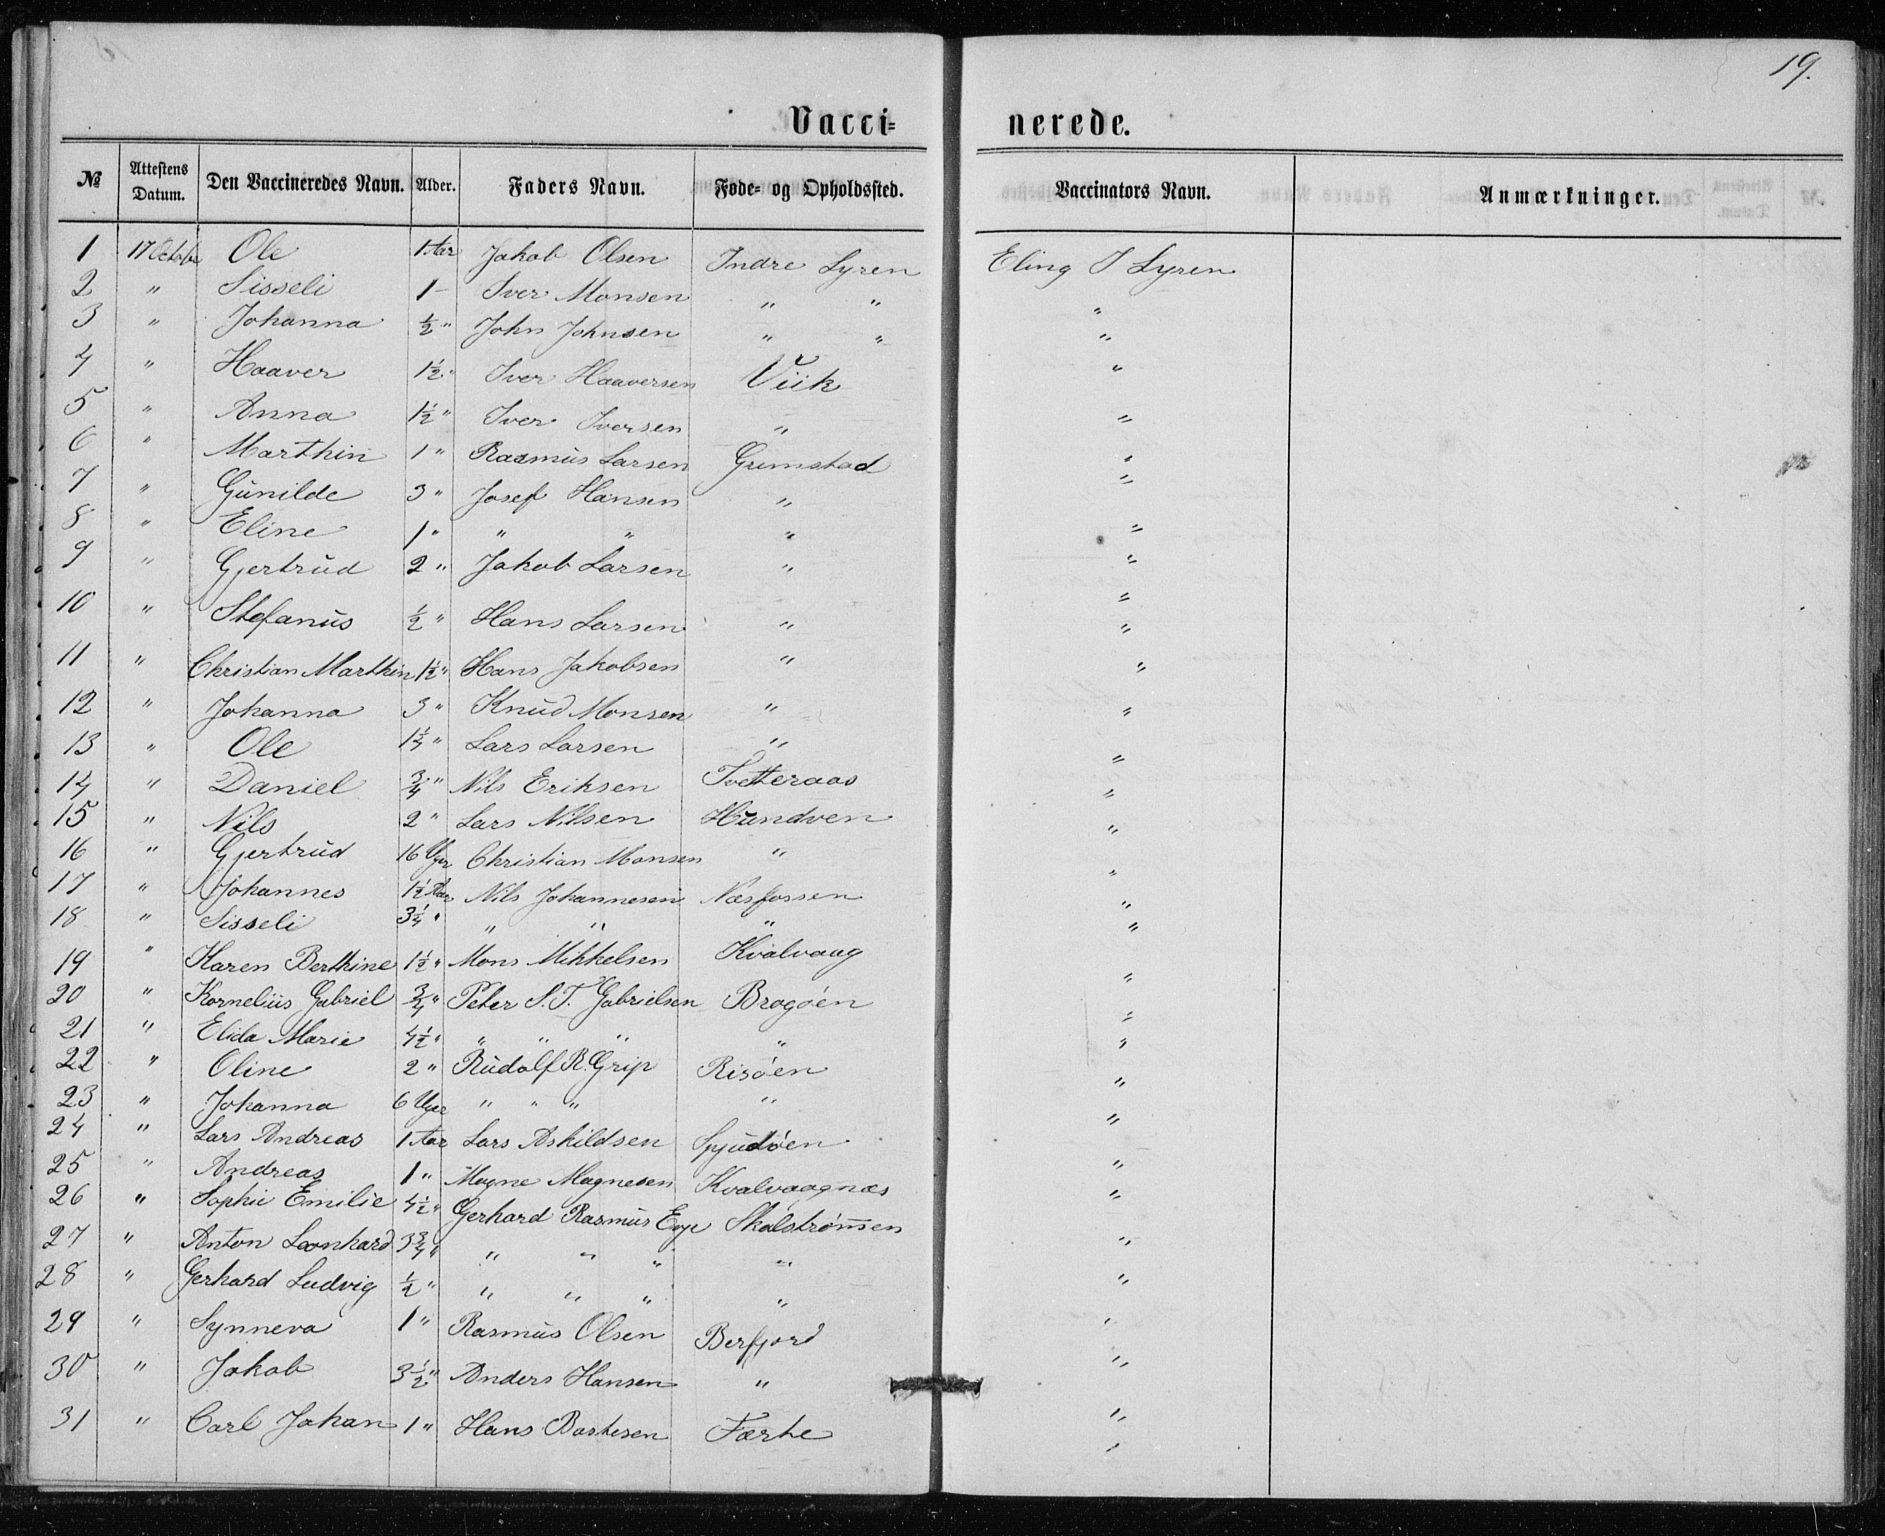 19.
Vacci= nerede.
№ Attestens Datum. Den Vaccineredes Navn. Alder. Faders Navn. Føde- og Opholdssted. Vaccinators Navn. Anmærkninger.
1 17 Octobr Ole 1 Aar Jakob Olsen Indre Lyren Eling J Lyren
2 " Sisseli 1 - Iver Monsen " " "
3 " Johanna ½ " John Johnsen " " "
4 " Haaver 1½ " Iver Haaversen Viik "
5 " Anna 1½ " Iver Iversen " "
6 " Marthin 1 " Rasmus Larsen Grimstad "
7 " Gunilde 3 " Josef Hansen " "
8 " Eline 1 " " " " "
9 " Gjertrud 2 " Jakob Larsen " "
10 " Stefanus ½ " Hans Larsen " "
11 " Christian Marthin 1½ " Hans Jakobsen " "
12 " Johanna 3 " Knud Monsen " "
13 " Ole 1¼ " Lars Larsen " "
14 " Daniel ¾ " Nils Eriksen Tvetteraas "
15 " Nils 2 " Lars Nilsen Hundven "
16 " Gjertrud 16 Uger Christian Monsen " "
17 " Johannes 1½ Aar Nils Johannesen Næsfossen "
18 " Sisseli 3¼ " " " " "
19 " Karen Berthine 1½ " Mons Mikkelsen Kvalvaag "
20 " Kornelius Gabriel ¾ " Peter S. T. Gabrielsen Bragøen "
21 " Elida Marie 4½ " " " " " "
22 " Oline 2 " Rudolf R. Grip Risøen "
23 " Johanna 6 Uger " " " " "
24 " Lars Andreas 1 Aar Lars Askildsen Spjutøen "
25 " Andreas 1 " Magne Magnesen Kvalvaagnæs "
26 " Sophie Emilie 4½ " Gerhard Rasmus Eye Skalstrømsen "
27 " Anton Leonhard 3¾ " " " " " "
28 " Gerhard Ludvig ½ " " " " " "
29 " Synneva 1 " Rasmus Olsen Berfjord "
30 " Jakob 3½ " Anders Hansen " "
31 " Carl Johan 1 " Hans Bastesen Færhe "